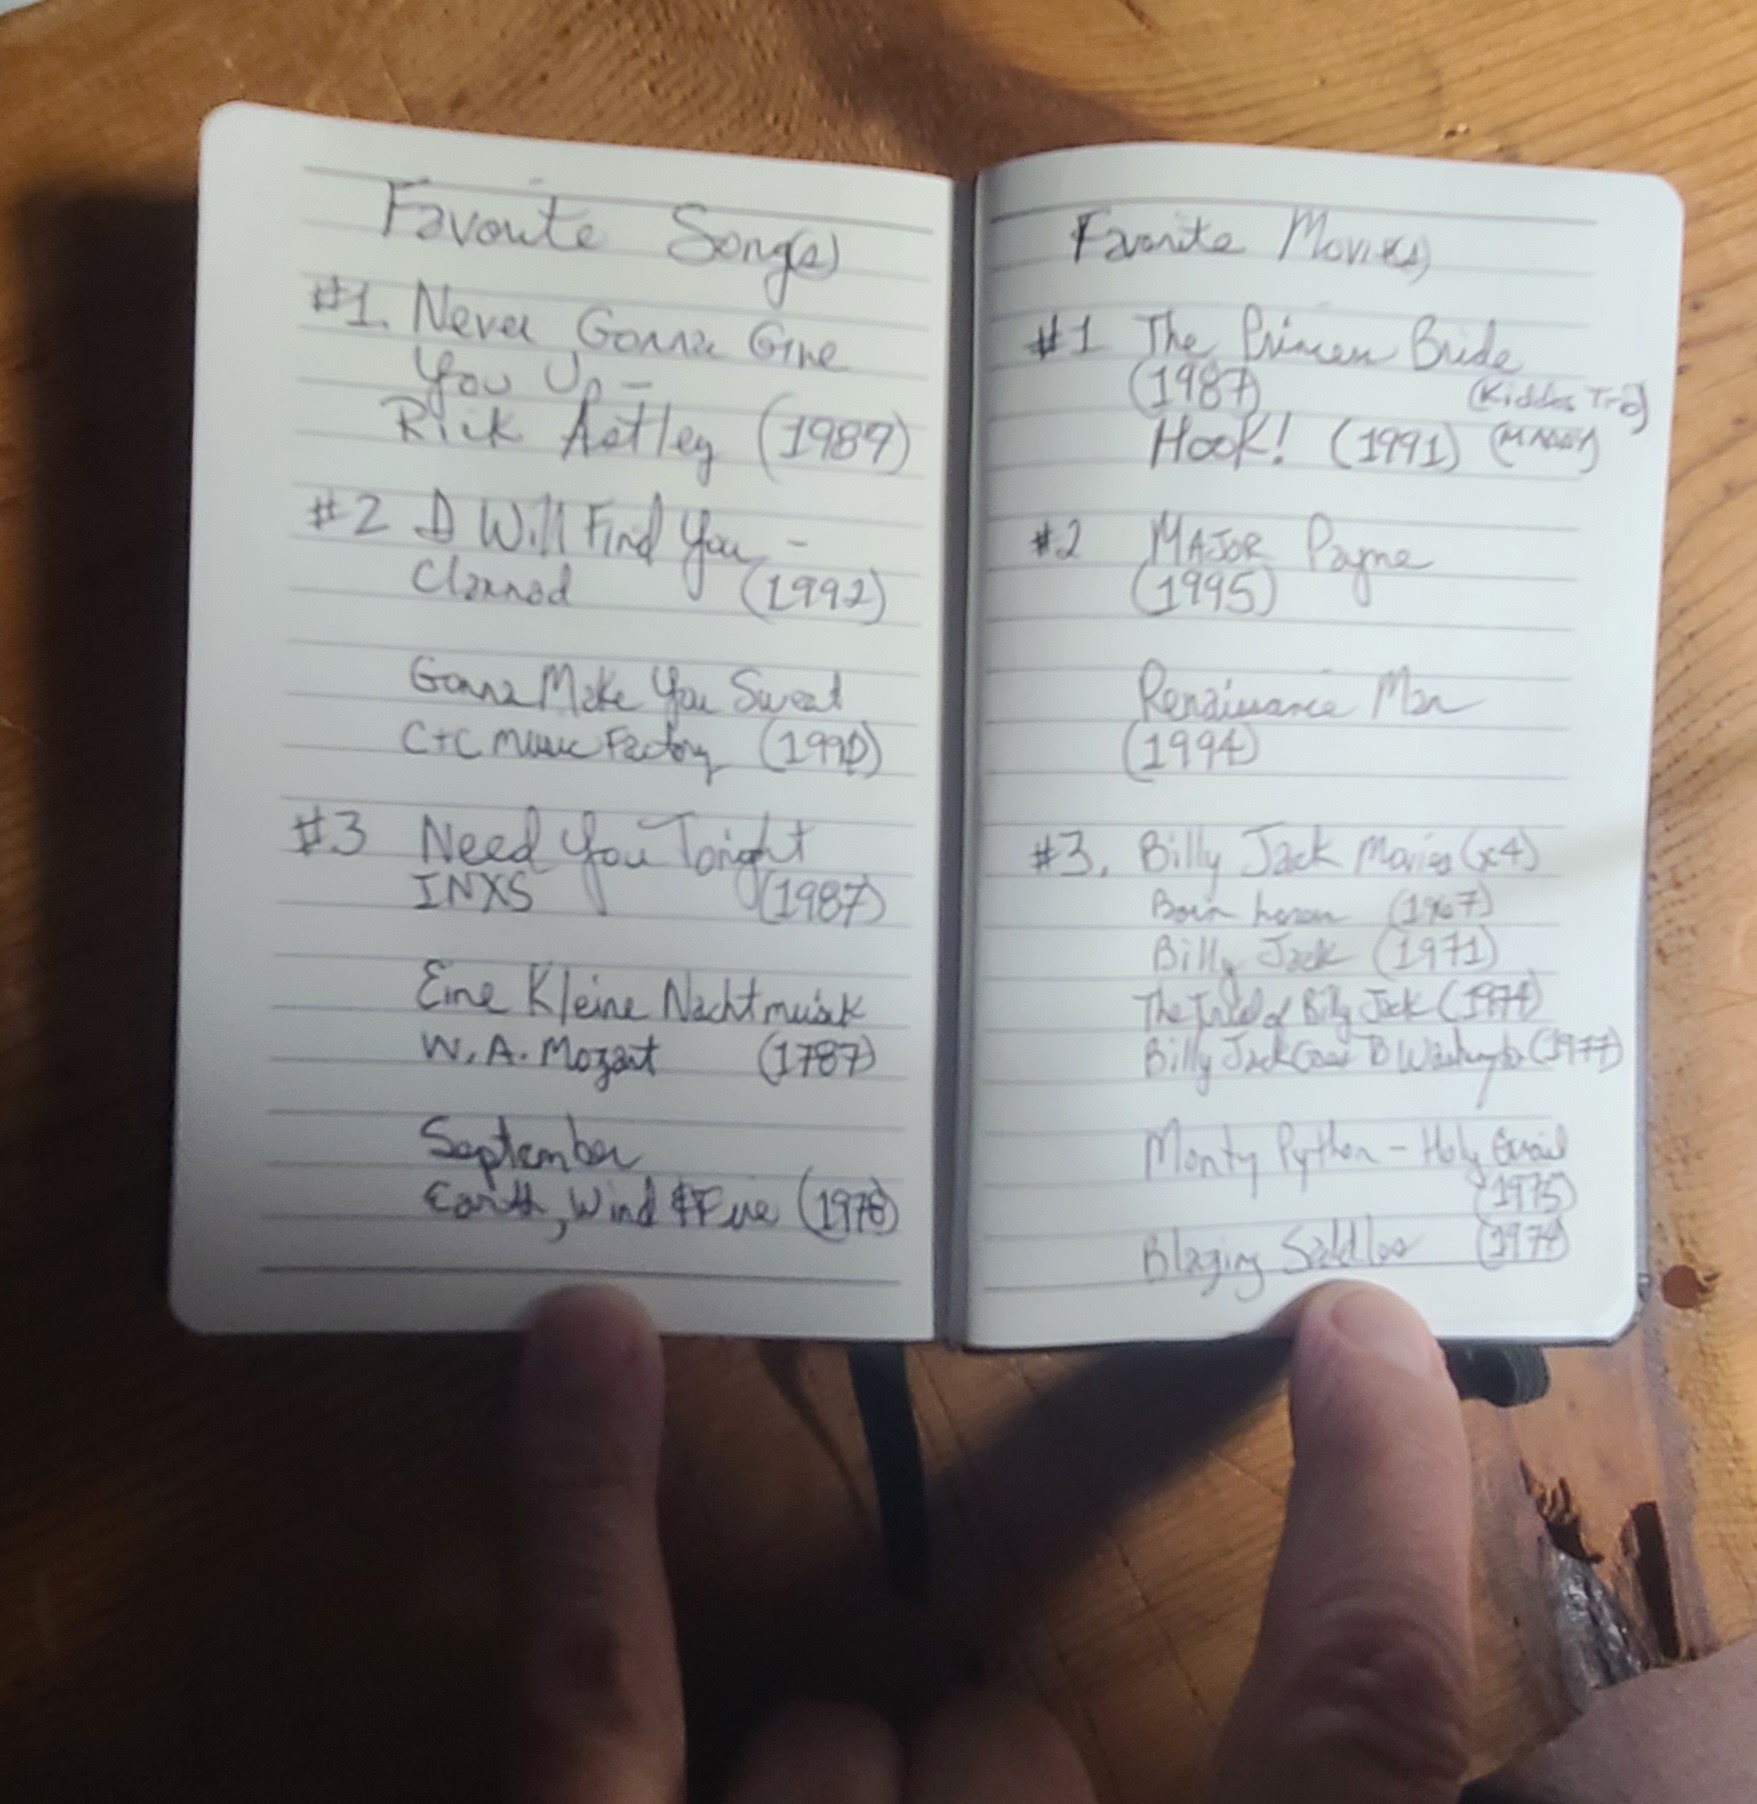 Favorite Song(s)
#1. Never Gonna Give
You Up -
Rick Astley (1987)
#2 I Will Find You -
Clannad (1992)
Gonna Make You Sweat
C+C Music Factory (1990)
#3 Need You Tonight
INXS (1987)
Eine Kleine Nachtmusik
W. A. Mozart (1787)
September
Earth, Wind & Fire (1978)
Favorite Movie(s)
#1 The Princess Bride
(1987)
Hook! (1991)
#2 MAJOR Payne
(1995)
Renaissance Man
(1994)
#3. Billy Jack Movies (x4)
Born Losers (1967)
Billy Jack (1971)
The Trial of Billy Jack (1974)
Billy Jack Goes To Washington (1977)
Monty Python - Holy Grail
(1975)
Blazing Saddles (1974)